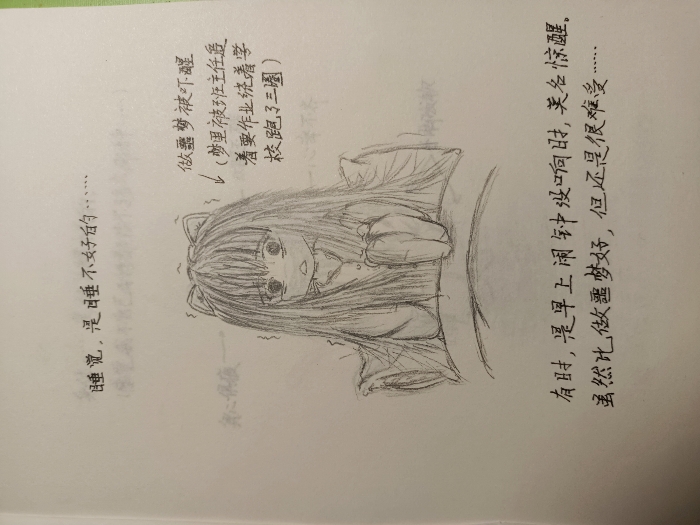 睡觉，是睡不好的……
做噩梦被吓醒
(梦里被班主任追
着要作业绕着学
校跑了三圈)
有时，是早上闹钟没响时，莫名惊醒。
虽然比做噩梦好，但还是很难受……